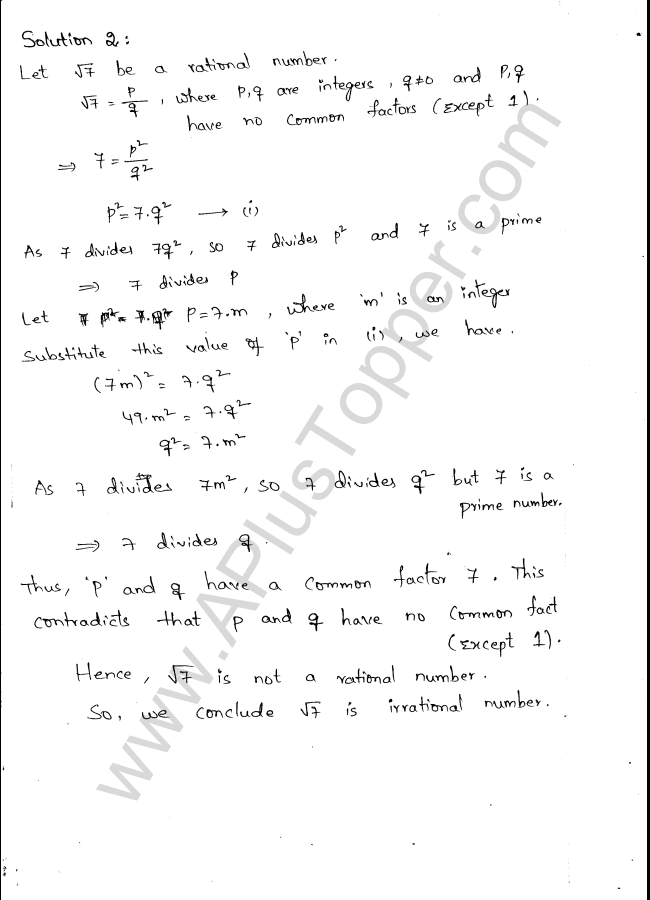 Solution 2:
Let √7 be a rational number.
√7 = p/q, where P,q are integers, q≠0 and P,q
have no common factors (Except 1).
⇒ 7 = p²/q²
p² = 7.q² → (i)
As 7 divides 7q², so 7 divides p² and 7 is a prime
⇒ 7 divides P
Let P=7.m, where 'm' is an integer
Substitute this value of 'p' in (i), we have.
(7m)² = 7.q²
49.m² = 7.q²
q² = 7.m²
As 7 divides 7m², so 7 divides q² but 7 is a
prime number.
⇒ 7 divides q.
Thus, 'p' and q have a common factor 7. This
contradicts that p and q have no common fact
(Except 1).
Hence, √7 is not a rational number.
So, we conclude √7 is irrational number.
www.APlusTopper.com